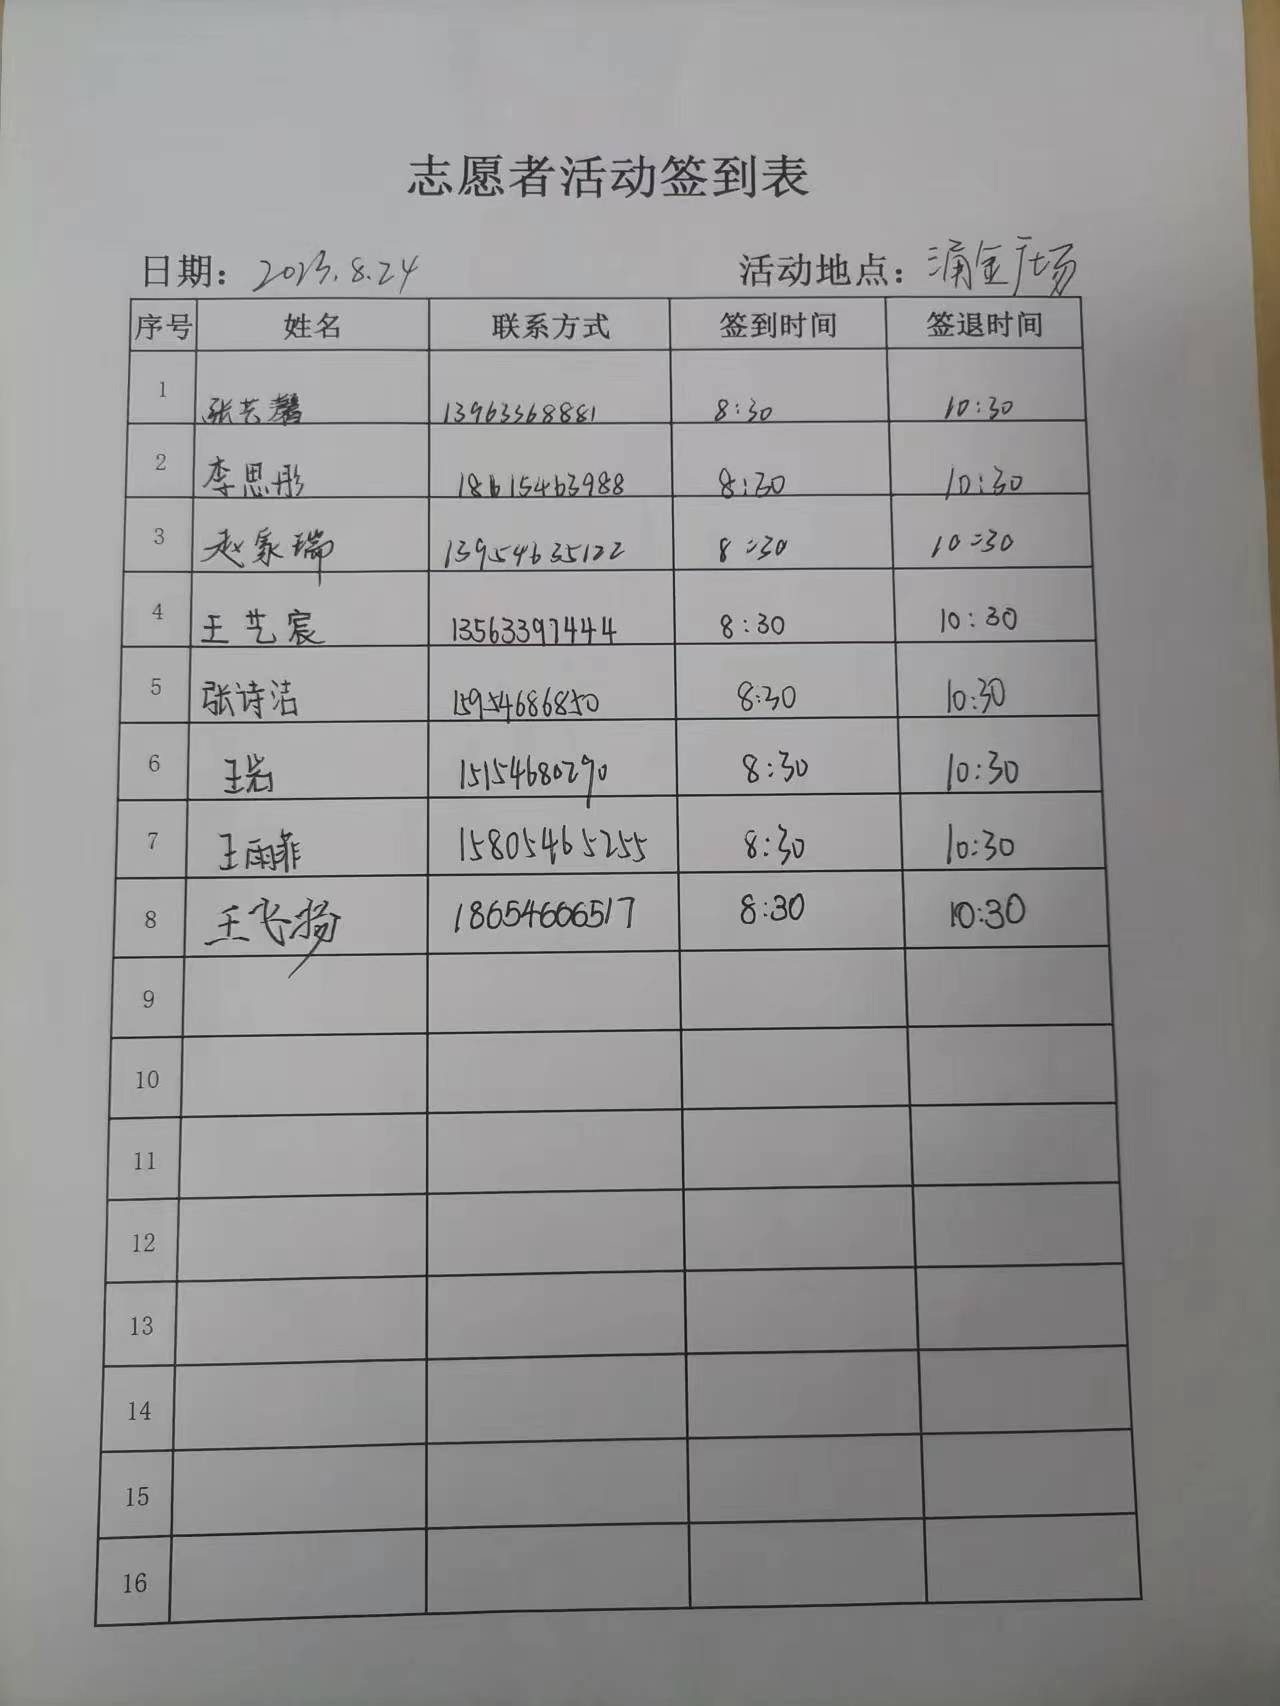 志愿者活动签到表
日期: 2023.8.24 活动地点: 涌金广场
序号 姓名 联系方式 签到时间 签退时间
1 张艺馨 13963368881 8:30 10:30
2 李思彤 18615463988 8:30 10:30
3 赵家瑞 13954635122 8:30 10:30
4 王艺宸 13563397444 8:30 10:30
5 张诗洁 15954686850 8:30 10:30
6 王岩 15154680290 8:30 10:30
7 王雨菲 15805465255 8:30 10:30
8 王飞扬 18654666517 8:30 10:30
9
10
11
12
13
14
15
16